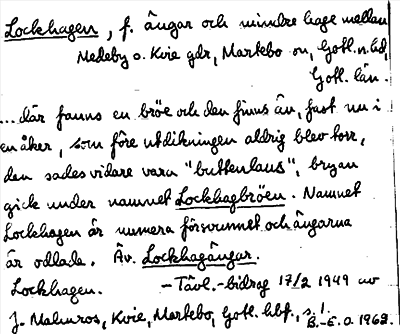 Lockhagen, f. ängar och mindre hage mellan
Medeby o. Kvie gdr, Martebo sn, Gotl. n. hd,
Gotl. län.
...där fanns en bröe och den finns än, fast nu i
en åker, som före utdikningen aldrig blev torr,
den sades vidare vara "buttenlaus", bryan
gick under namnet Lockhagbröen. Namnet
Lockhagen är numera försvunnet och ängarna
är odlade. Äv. Lockhagängar.
Lockhagen. – Tävl.-bidrag 17/2 1949 av
J. Malmros, Kvie, Martebo, Gotl. hbf., s. 1.
B.-E. O. 1963.